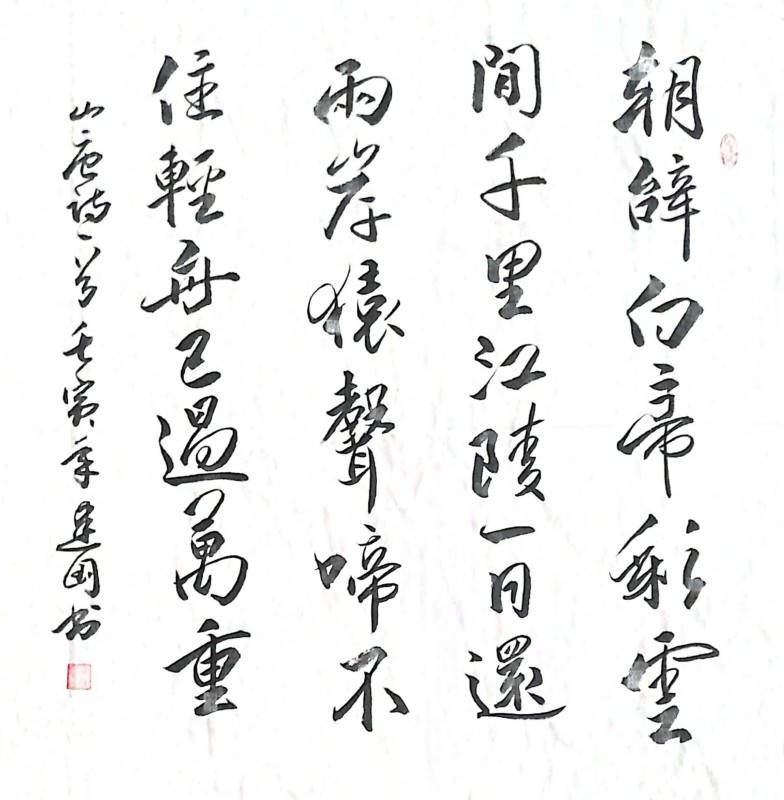 朝辭白帝彩雲
間千里江陵一日還
兩岸猿聲啼不
住輕舟已過萬重
山唐诗一首壬寅年建明书